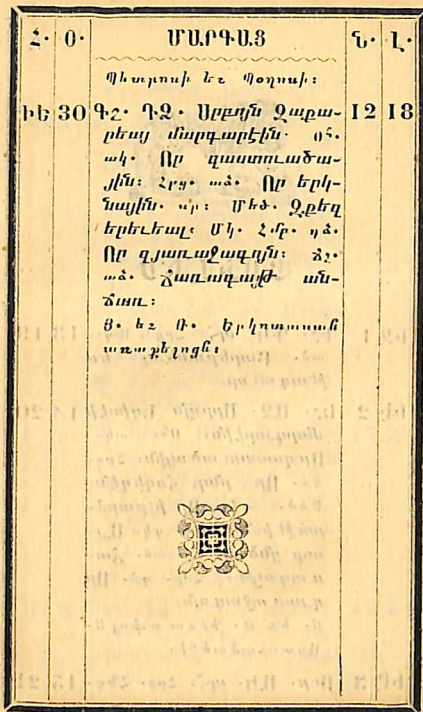 Հ· Օ· ՄԱՐԳԱՑ Ն· Լ·
Պետրոսի եւ Պօղոսի։
ԻԵ 30 ԳՇ· ԴՁ· Սրբոյն Զաքա- 12 18
րեայ մարգարէին· օհ·
ակ· Որ զաստուածա-
յին։ Հրց· ած· Որ երկ-
նային· սր։ Մեծ· Զքեզ
երեւեալ։ Մկ· Համբ· դձ·
Որ զյառաջագոյն։ Ճշ·
ած· Ճառագայթ ան-
ճառ։
Ց· եւ Թ· Երկոտասան
առաքելոցն։